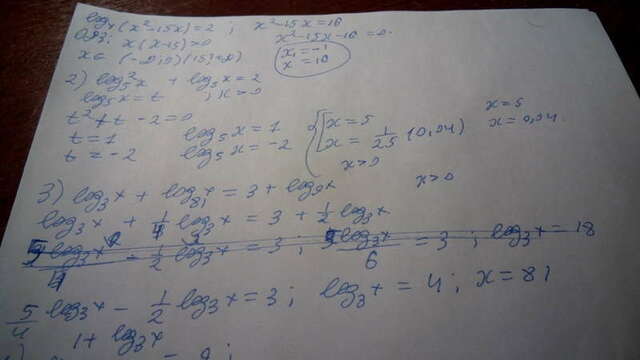 log₄(x²-15x)=2 ; x²-15x=16
ОДЗ: x(x-15)>0 x²-15x-16=0
x∈ (-∞;0)(15;+∞) x₁=-1
x=16
2) log₅²x + log₅x=2
log₅x=t ; x>0
t²+t-2=0
t=1 log₅x=1 x=5 x=5
t=-2 log₅x=-2 x=1/25 (0,04) x=0,04
x>0
3) log₃x + log₈₁x = 3 + log₉x x>0
log₃x + 1/4 log₃x = 3 + 1/2 log₃x
5/4 log₃x - 1/2 log₃x = 3 ; log₃x = 4 ; x=81
1+log₃x